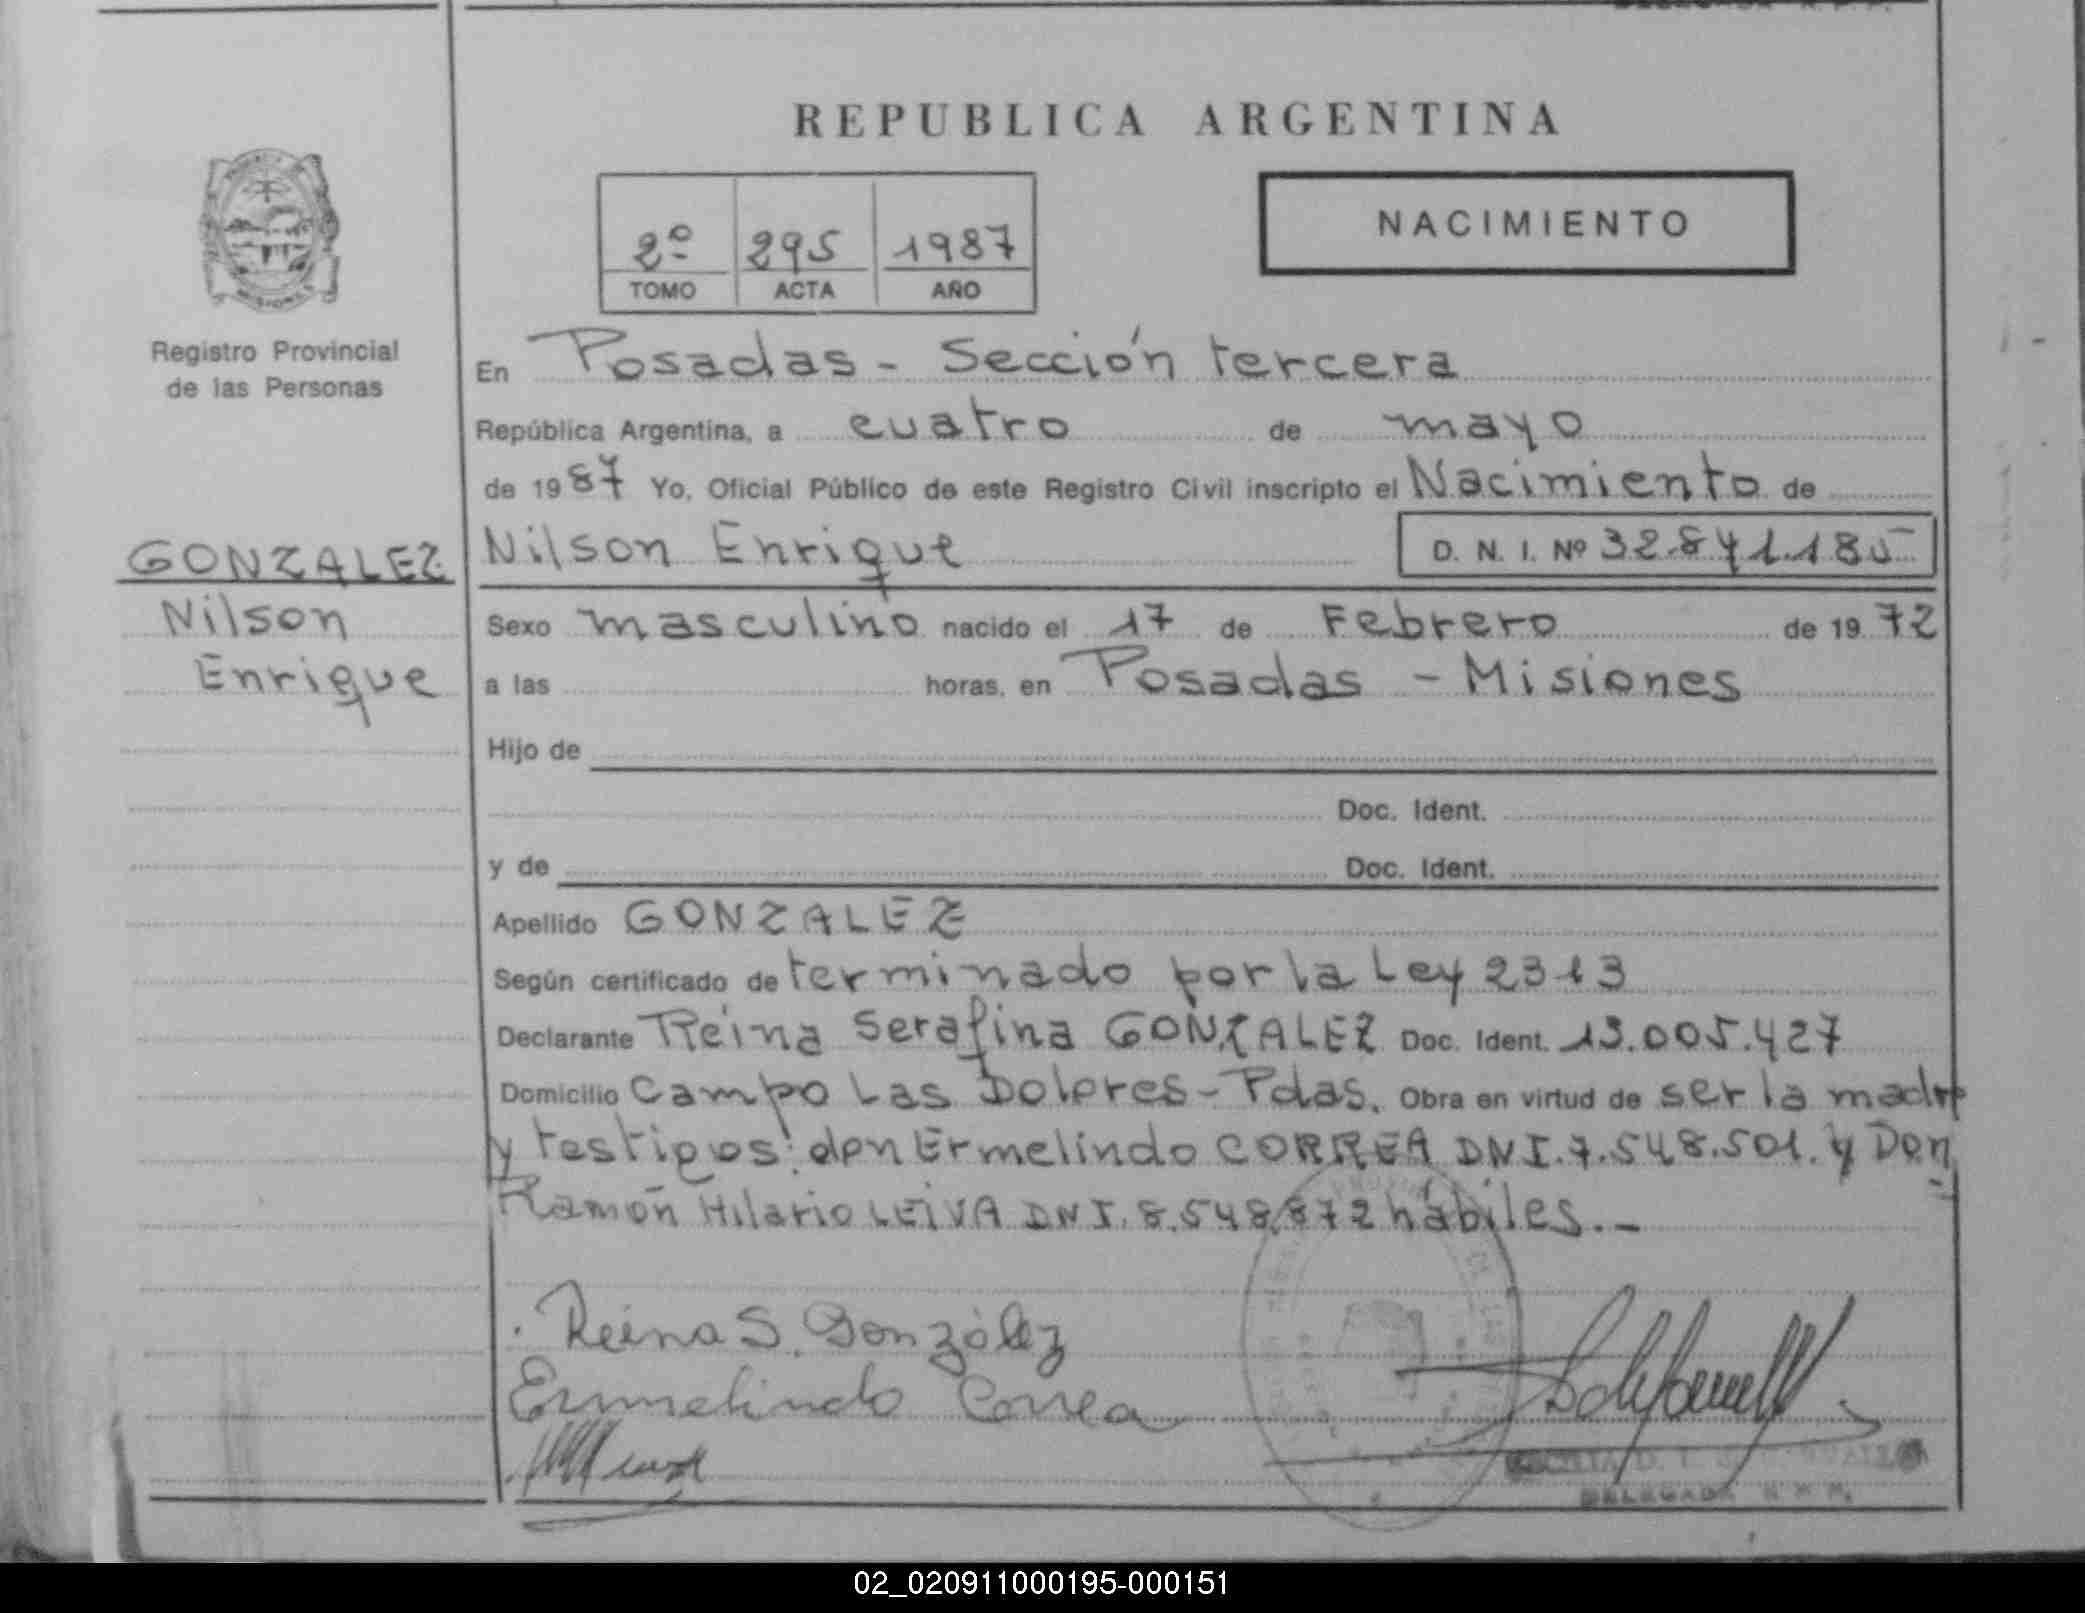 REPUBLICA ARGENTINA
NACIMIENTO
2º 295 1987
TOMO ACTA AÑO
MISIONES
Registro Provincial
de las Personas
En Posadas - Sección tercera
República Argentina, a cuatro de mayo
de 1987 Yo, Oficial Público de este Registro Civil inscripto el Nacimiento de
GONZALEZ Nilson Enrique D. N. I. Nº 32.841.185
Nilson Sexo masculino nacido el 17 de Febrero de 1972
Enrique a las horas, en Posadas - Misiones
Hijo de
Doc. Ident.
y de Doc. Ident.
Apellido GONZALEZ
Según certificado de terminado por la Ley 2313
Declarante Reina Serafina GONZALEZ Doc. Ident. 13.005.427
Domicilio Campo Las Dolores - Pdas. Obra en virtud de ser la madre
y testigos: don Ermelindo CORREA DNI. 7.548.501. y Don
Ramón Hilario LEIVA DNI. 8.548.872 hábiles.-
Reina S. González
Ermelindo Correa
DELEGADA
02_020911000195-000151